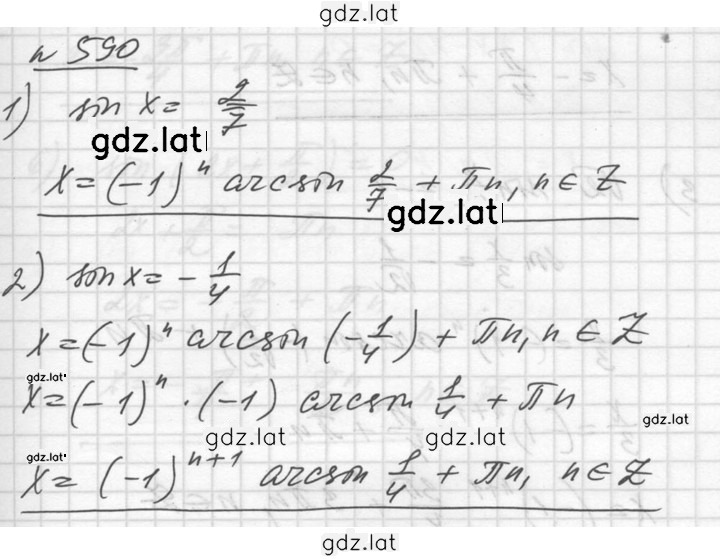 gdz.lat
n 590
1) sin x = 2/7
gdz.lat
x = (-1)^n arcsin 2/7 + πn, n ∈ Z
gdz.lat
2) sin x = - 1/4
x = (-1)^n arcsin (-1/4) + πn, n ∈ Z
gdz.lat
x = (-1)^n · (-1) arcsin 1/4 + πn
gdz.lat
gdz.lat gdz.lat
gdz.lat
x = (-1)^(n+1) arcsin 1/4 + πn, n ∈ Z
gdz.lat